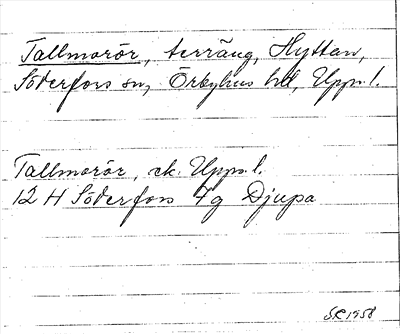 Tallmorör, terräng, Hyttan,
Söderfors sn, Örbyhus hd, Uppl.
Tallmorör, ek. Uppl.
12 H Söderfors 7g Djupa
SR 1958